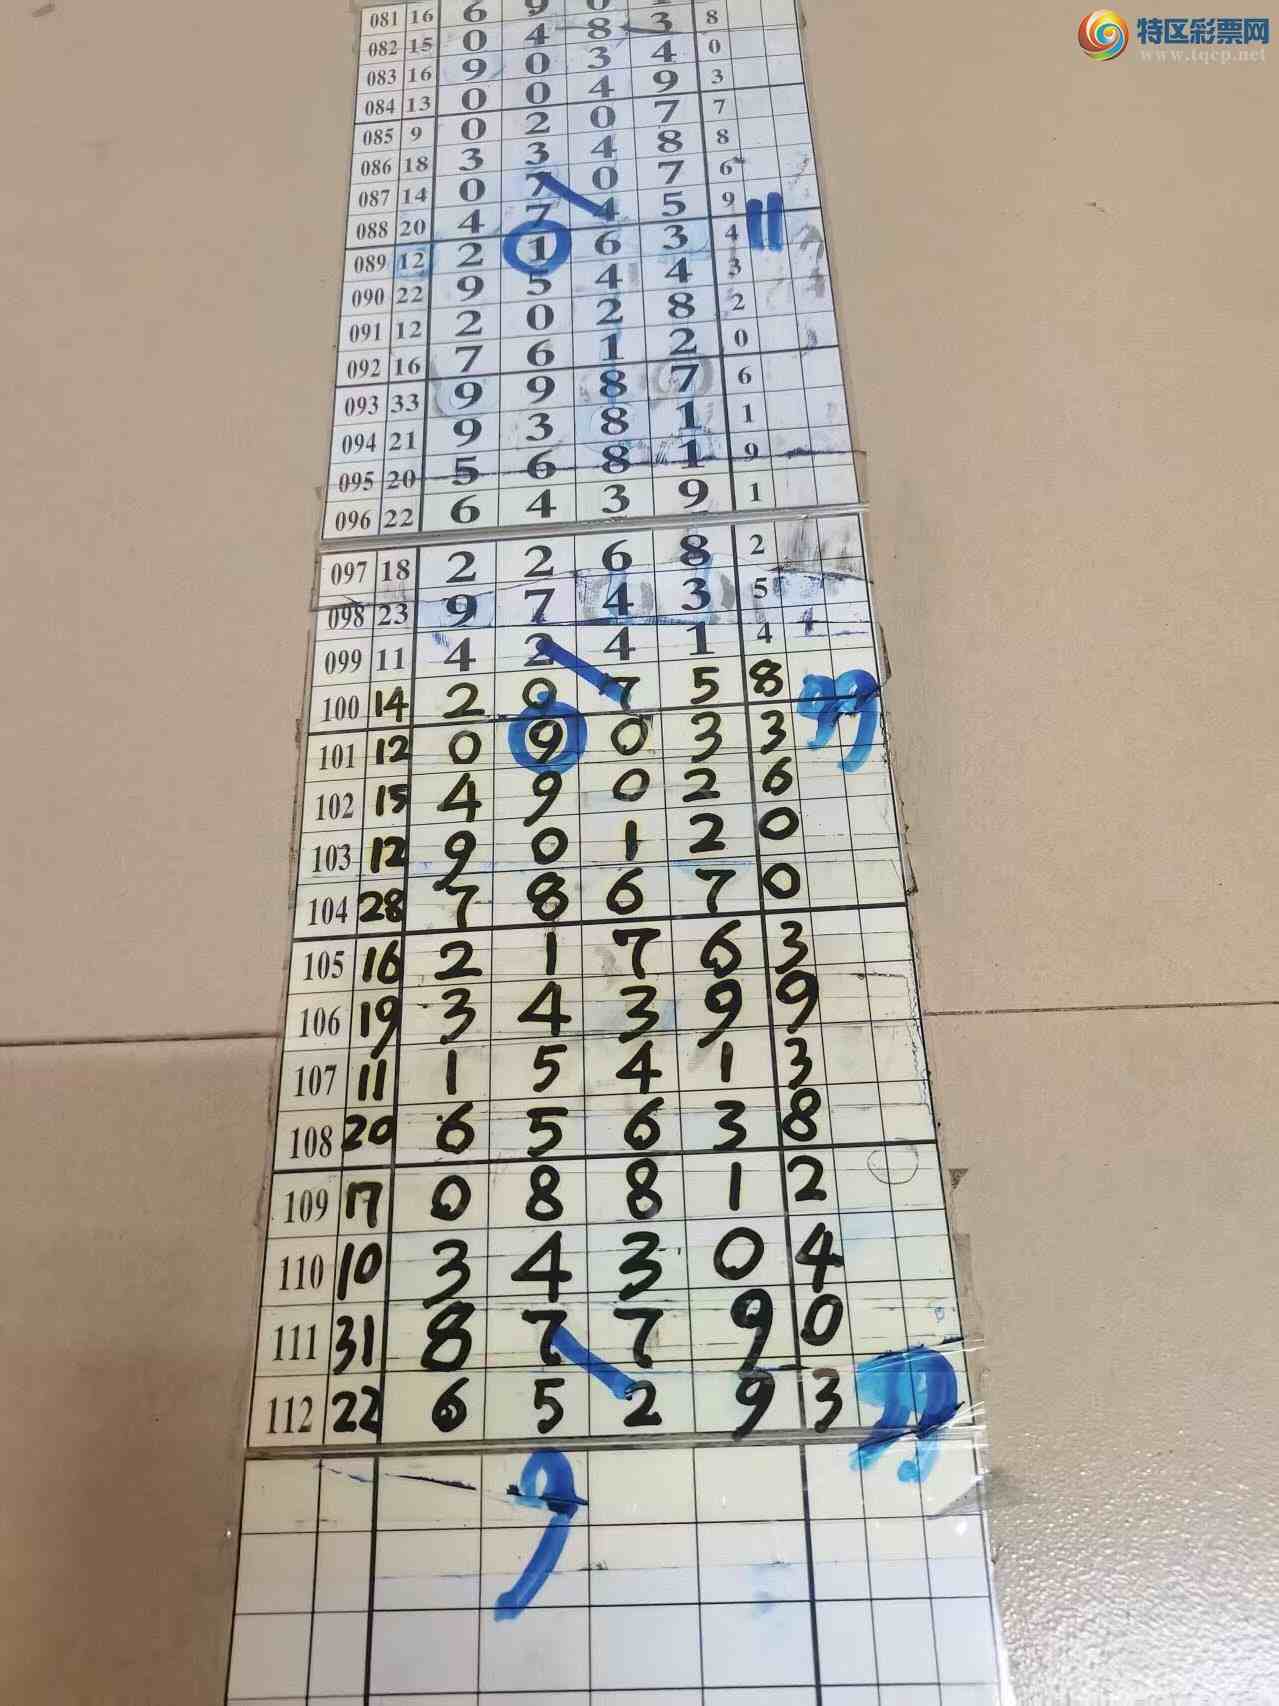 特区彩票网
www.tqcp.net
081 16 6 9 0 1 8
082 15 0 4 8 3 0
083 16 9 0 3 4 3
084 13 0 0 4 9 7
085 9 0 2 0 7 8
086 18 3 3 4 8 6
087 14 0 7 0 7 9
088 20 4 7 4 5 4
089 12 2 1 6 3 3
090 22 9 5 4 4 2
091 12 2 0 2 8 0
092 16 7 6 1 2 6
093 33 9 9 8 7 1
094 21 9 3 8 1 9
095 20 5 6 8 1 1
096 22 6 4 3 9
097 18 2 2 6 8 2
098 23 9 7 4 3 5
099 11 4 2 4 1 4
100 14 2 0 7 5 8
101 12 0 9 0 3 3
102 15 4 9 0 2 6
103 12 9 0 1 2 0
104 28 7 8 6 7 0
105 16 2 1 7 6 3
106 19 3 4 3 9 9
107 11 1 5 4 1 3
108 20 6 5 6 3 8
109 17 0 8 8 1 2
110 10 3 4 3 0 4
111 31 8 7 7 9 0
112 22 6 5 2 9 3
9